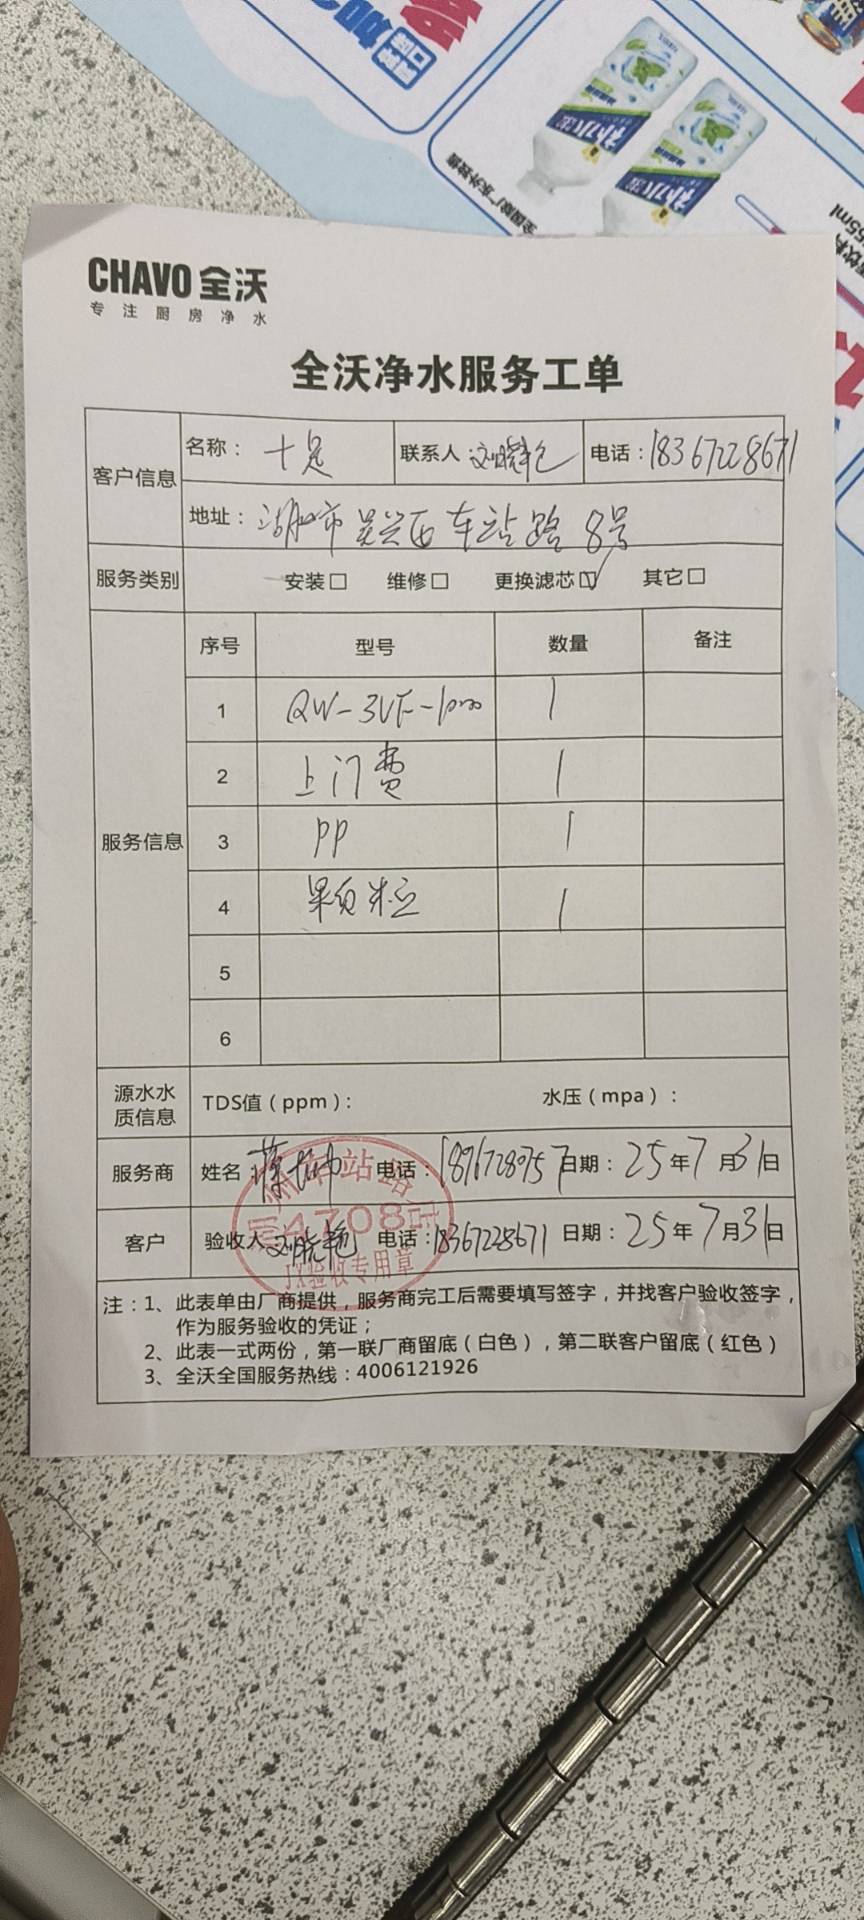 补水液
补水液
全国除广东外销售
CHAVO 全沃
专注厨房净水
全沃净水服务工单
客户信息 名称：十足 联系人：刘晓艳 电话：18367228671
地址：湖州市吴兴区车站路8号
服务类别 安装□ 维修□ 更换滤芯☑ 其它□
服务信息 序号 型号 数量 备注
1 QW-3UF-1pro 1
2 上门费 1
3 PP 1
4 颗粒 1
5
6
源水水质信息 TDS值（ppm）： 水压（mpa）：
服务商 姓名： 电话：18967280757 日期：25年7月31日
客户 验收人 刘晓艳 电话：18367228671 日期：25年7月31日
湖州车站路
4708店
JX验收专用章
注：1、此表单由厂商提供，服务商完工后需要填写签字，并找客户验收签字，
作为服务验收的凭证；
2、此表一式两份，第一联厂商留底（白色），第二联客户留底（红色）
3、全沃全国服务热线：4006121926